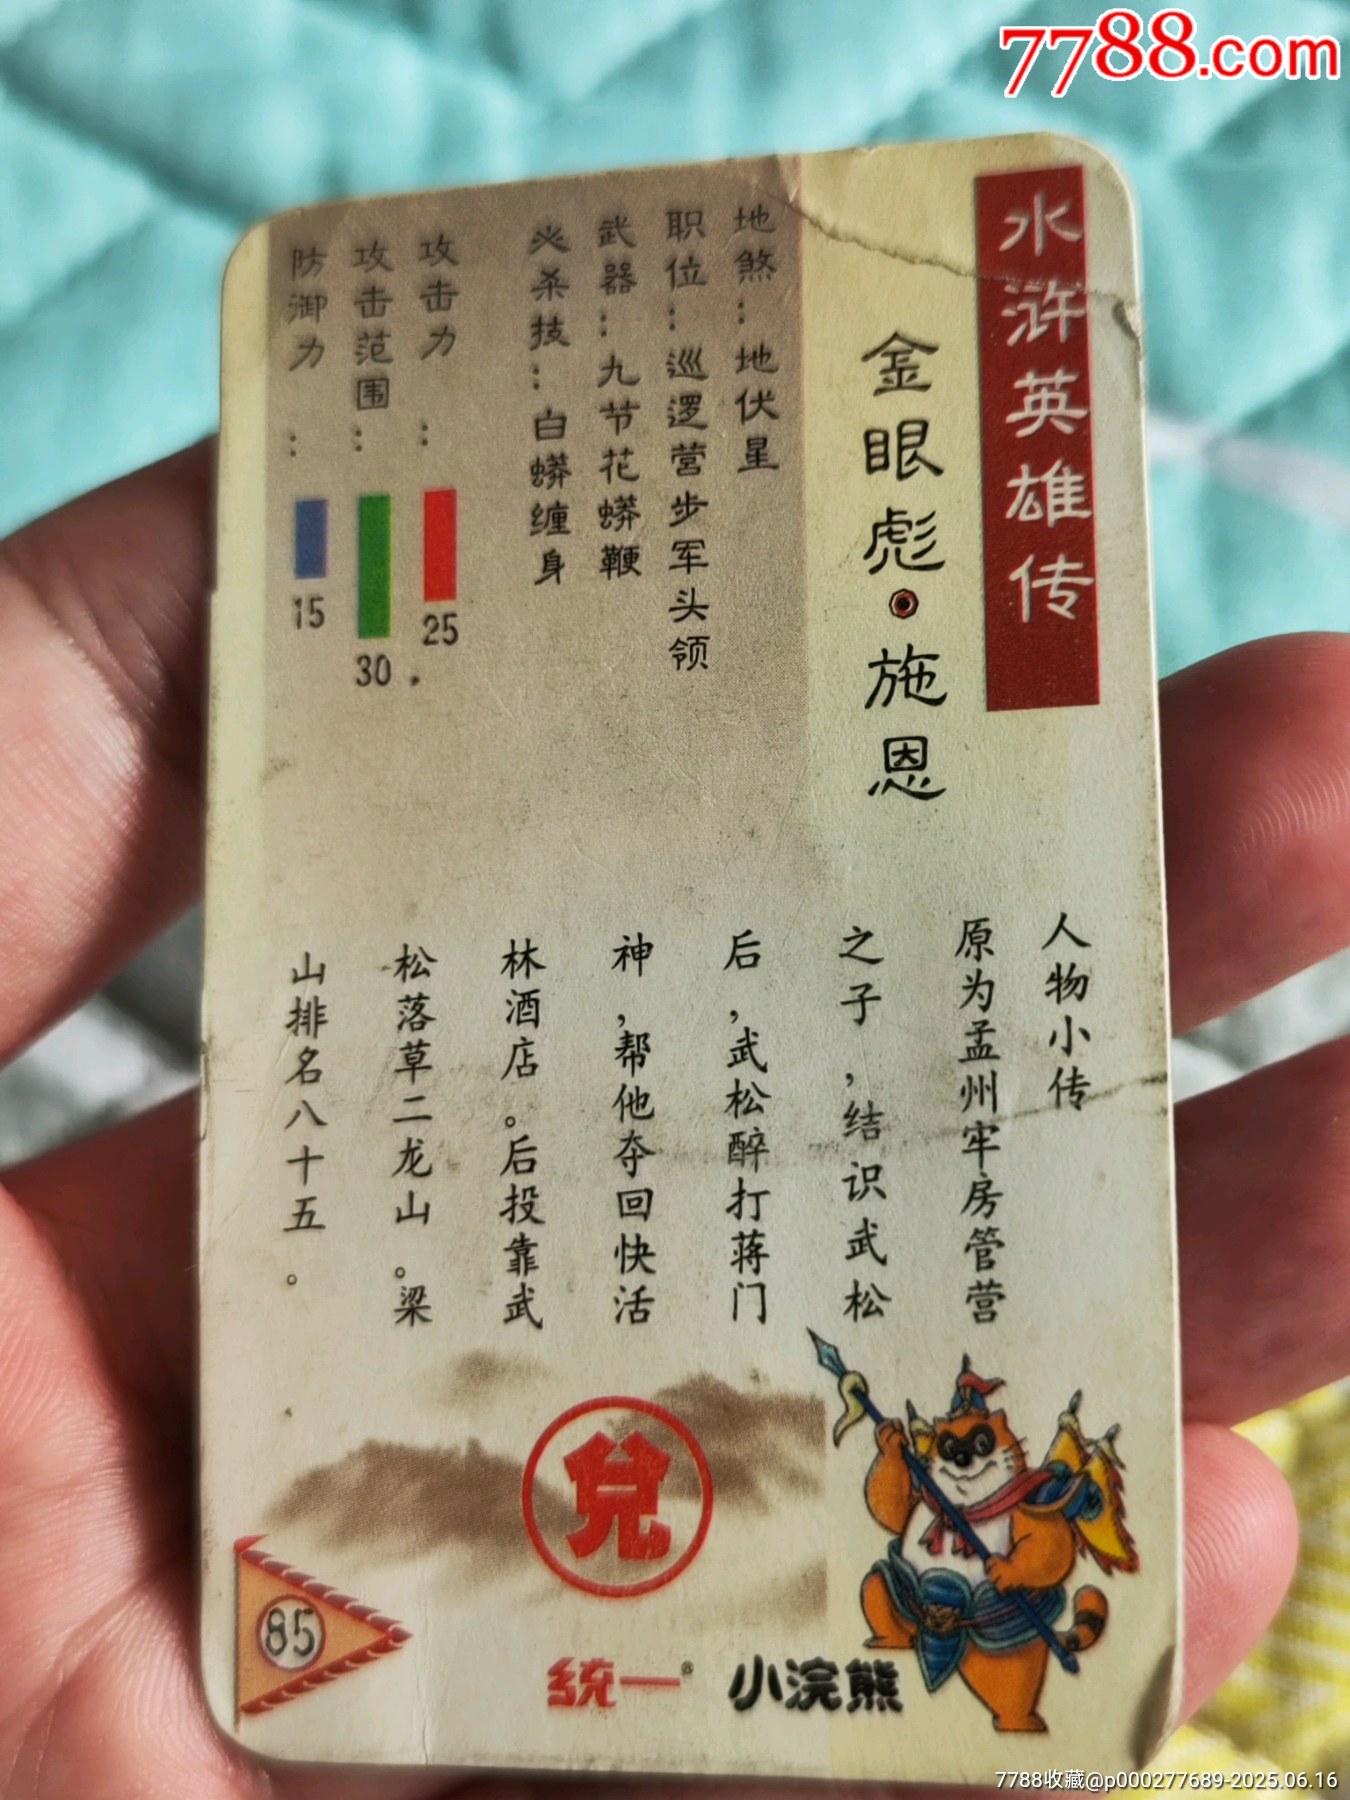 7788.com
水浒英雄传
金眼彪·施恩
地煞：地伏星
职位：巡逻营步军头领
武器：九节花蟒鞭
必杀技：白蟒缠身
攻击力：25
攻击范围：30
防御力：15
人物小传
原为孟州牢房管营
之子，结识武松
后，武松醉打蒋门
神，帮他夺回快活
林酒店。后投靠武
松落草二龙山。梁
山排名八十五。
兑
85
统一® 小浣熊
7788收藏@p000277689-2025.06.16